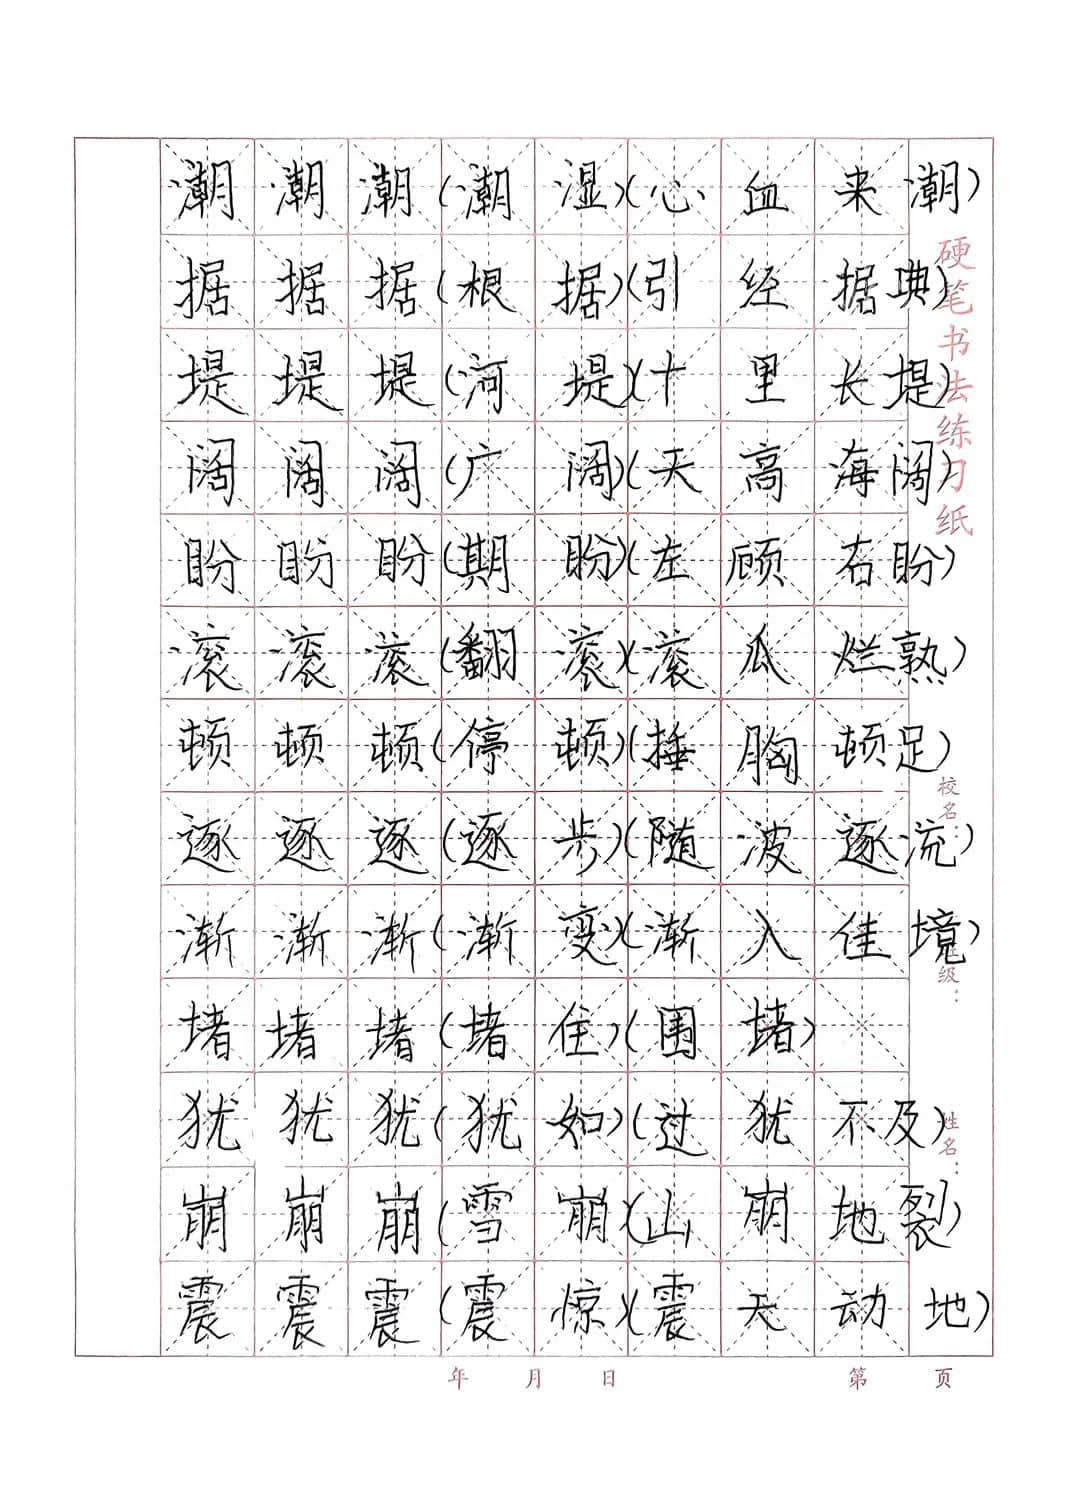 潮潮潮(潮湿)(心血来潮)
据据据(根据)(引经据典)
堤堤堤(河堤)(十里长堤)
阔阔阔(广阔)(天高海阔)
盼盼盼(期盼)(左顾右盼)
滚滚滚(翻滚)(滚瓜烂熟)
顿顿顿(停顿)(捶胸顿足)
逐逐逐(逐步)(随波逐流)
渐渐渐(渐变)(渐入佳境)
堵堵堵(堵住)(围堵)
犹犹犹(犹如)(过犹不及)
崩崩崩(雪崩)(山崩地裂)
震震震(震惊)(震天动地)
硬笔书法练习纸
校名：
级：
姓名：
年 月 日 第 页